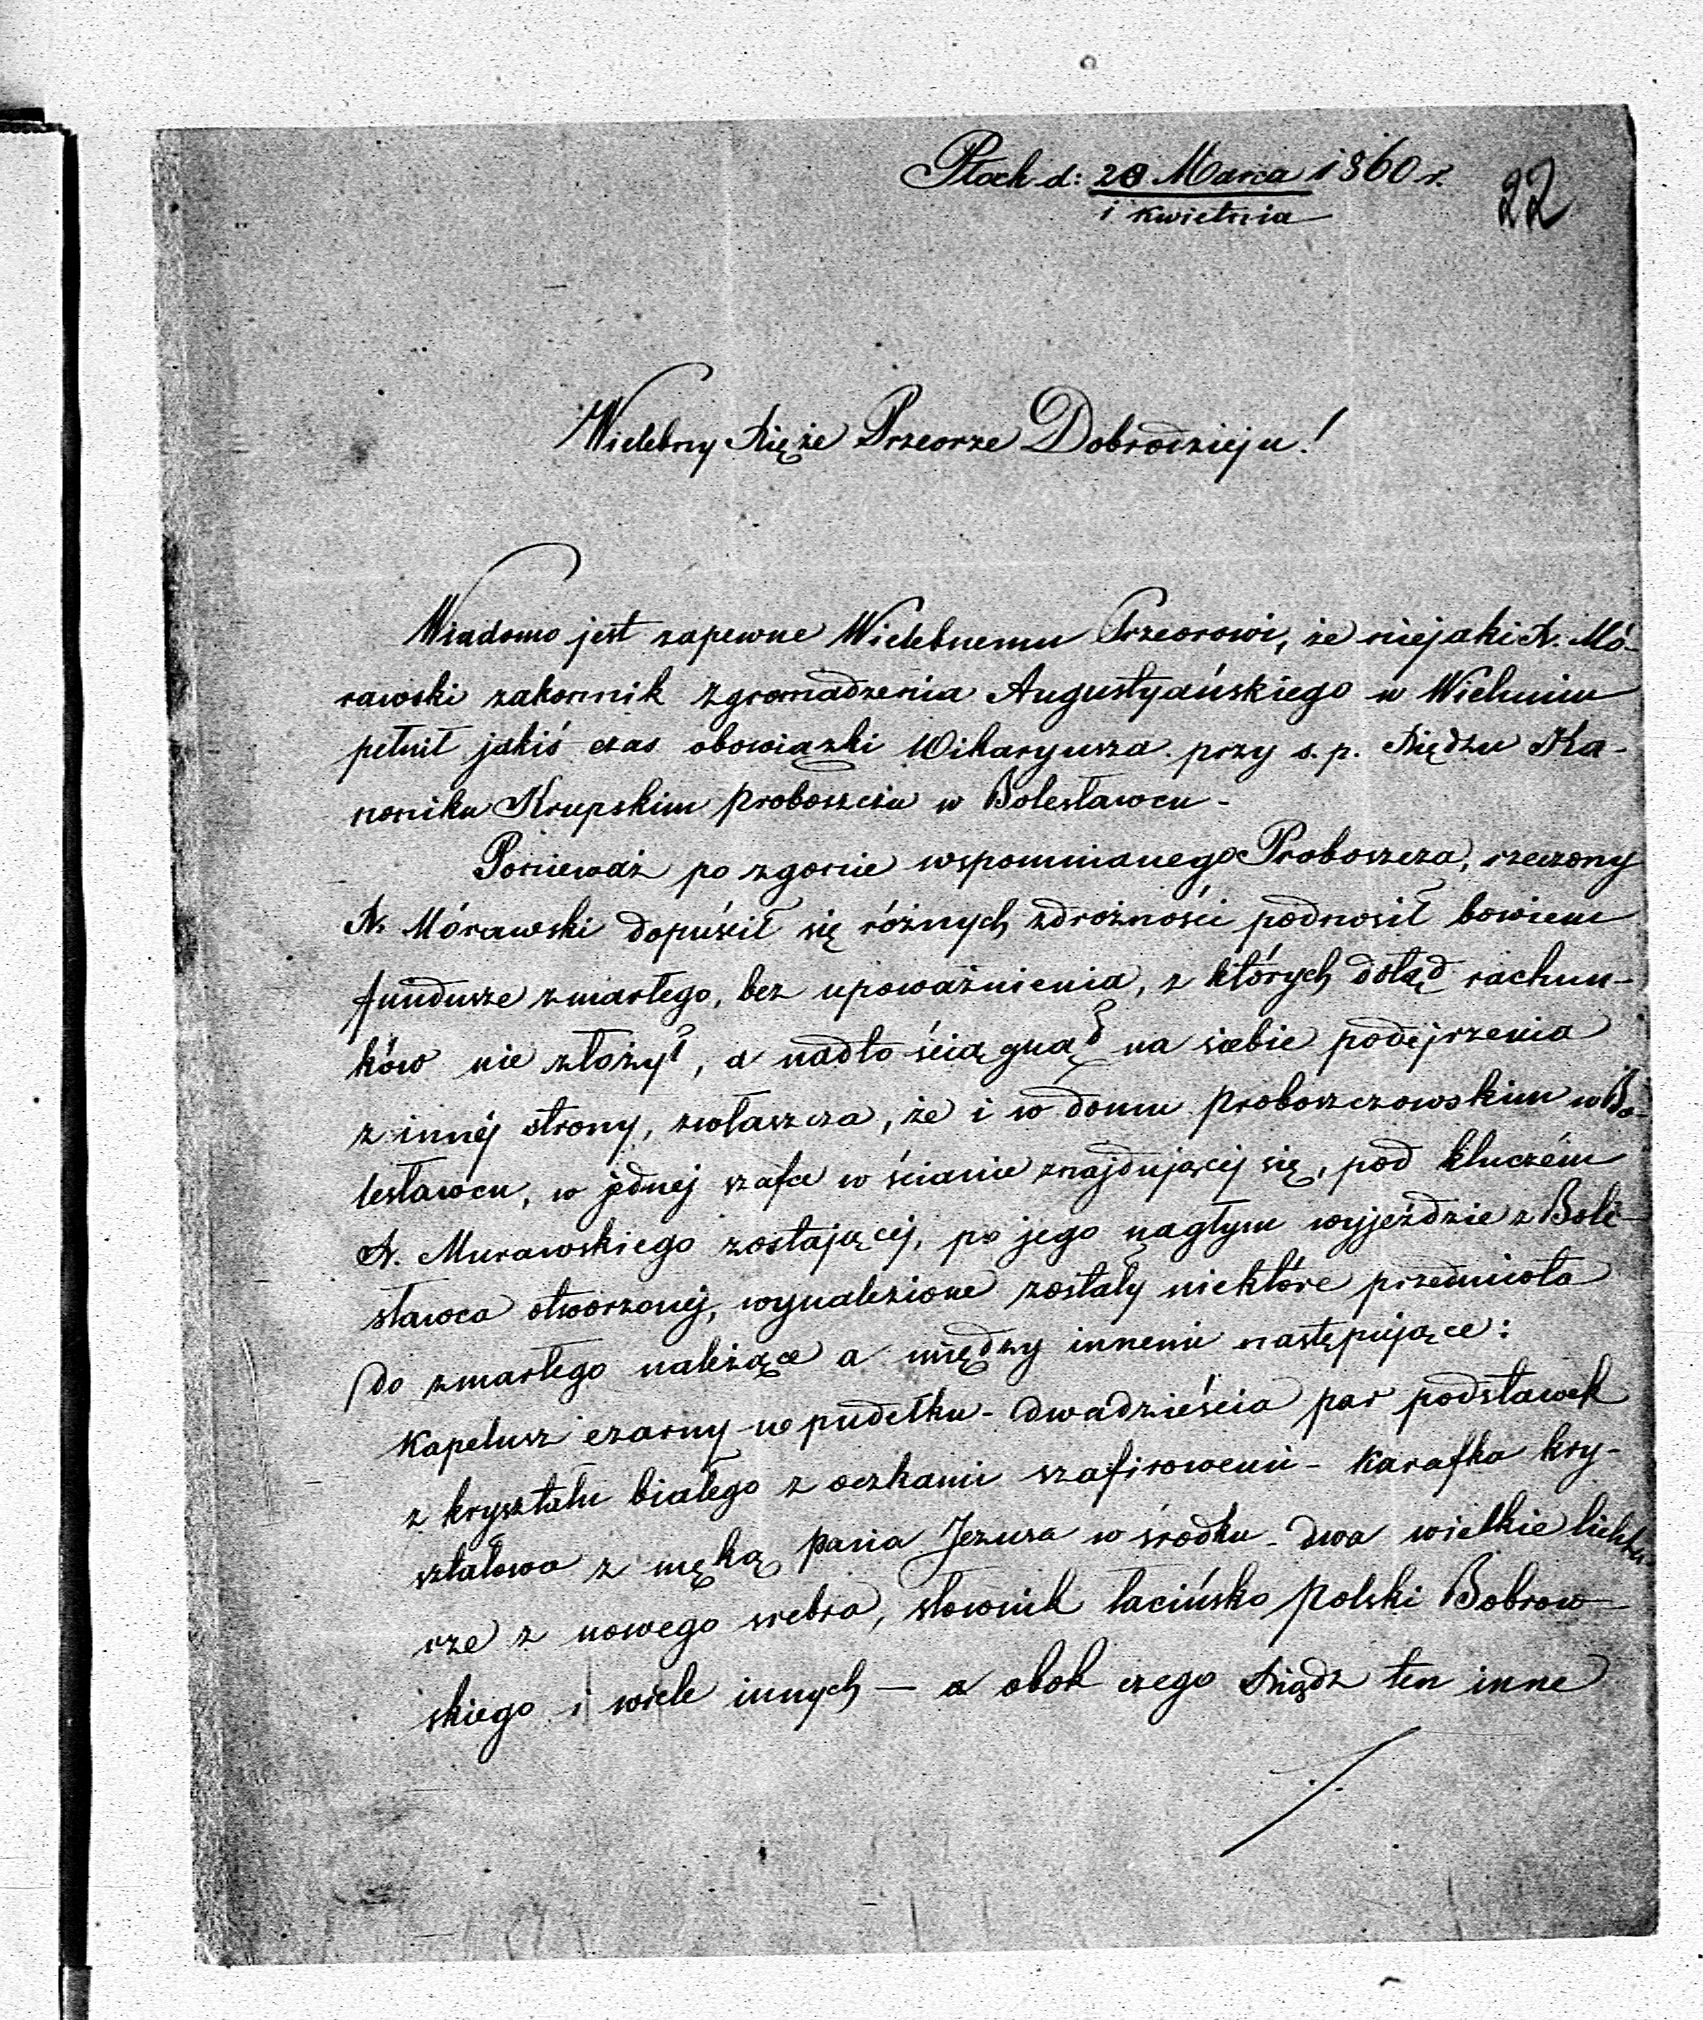 Płock d: 20 Marca 1860 r.
1 kwietnia
22
Wielebny Xięże Przeorze Dobrodzieju!
Wiadomo jest zapewne Wielebnemu Przeorowi, że niejaki X. Mó-
rawski zakonnik zgromadzenia Augustyańskiego w Wieluniu
pełnił jakiś czas obowiązki Wikaryusza przy s. p. Xiędzu Ka-
noniku Krupskim proboszczu w Bolesławcu -
Ponieważ po zgonie wspomnianego Proboszcza, rzeczony
X. Mórawski dopuścił się różnych zdrożności podnosił bowiem
fundusze zmarłego, bez upoważnienia, z których dotąd rachun-
ków nie złożył, a nadto ściągnął na siebie podejrzenia
z innéj strony, zwłaszcza, że i w domu proboszczowskim w Bo-
lesławcu, w jednej szafce w ścianie znajdującej się, pod kluczém
X. Murawskiego zostającej, po jego nagłym wyjeździe z Bole-
sławca otworzonej, wynalezione zostały niektóre przedmiota
do zmarłego należące a między innemi następujące:
Kapelusz czarny w pudełku - dwadzieścia par podstawek
z kryształu białego z oczkami szafirowemi - Karafka kry-
ształowa z męką pana Jezusa w środku - dwa wielkie lichta-
rze z nowego srebra, słownik łacińsko polski Bobrow-
skiego i wiele innych — a obok czego Xiądz ten inne
./.